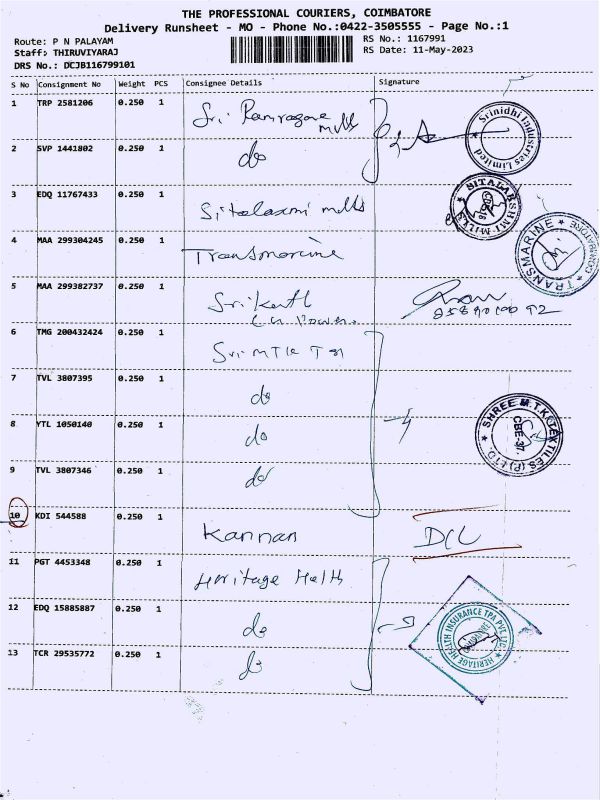 THE PROFESSIONAL COURIERS, COIMBATORE
Delivery Runsheet - MO - Phone No.:0422-3505555 - Page No.:1
Route: P N PALAYAM
RS No.: 1167991
Staff: THIRUVIYARAJ
RS Date: 11-May-2023
DRS No.: DCJB116799101
S No Consignment No Weight PCS Consignee Details Signature
1 TRP 2581206 0.250 1 Sri mills
Srinidhi Industries Limited
2 SVP 1441802 0.250 1 do
3 EDQ 11767433 0.250 1 Sitalaxmi mills
SITALAKSHMI MILLS
4 MAA 299304245 0.250 1 Transmarine
TRANSMARINE COIMBATORE
5 MAA 299382737 0.250 1 Srikanth
6 TMG 200432424 0.250 1 Sri MTK Tex
7 TVL 3807395 0.250 1 do
8 YTL 1050140 0.250 1 do
SHREE M.T.K TEXTILES (P) LTD. CBE-37.
9 TVL 3807346 0.250 1 do
10 KDI 544588 0.250 1 Kannan D/L
11 PGT 4453348 0.250 1 Heritage Helth
12 EDQ 15885887 0.250 1 do
-3
HERITAGE HEALTH INSURANCE TPA PVT. LTD.
13 TCR 29535772 0.250 1 do